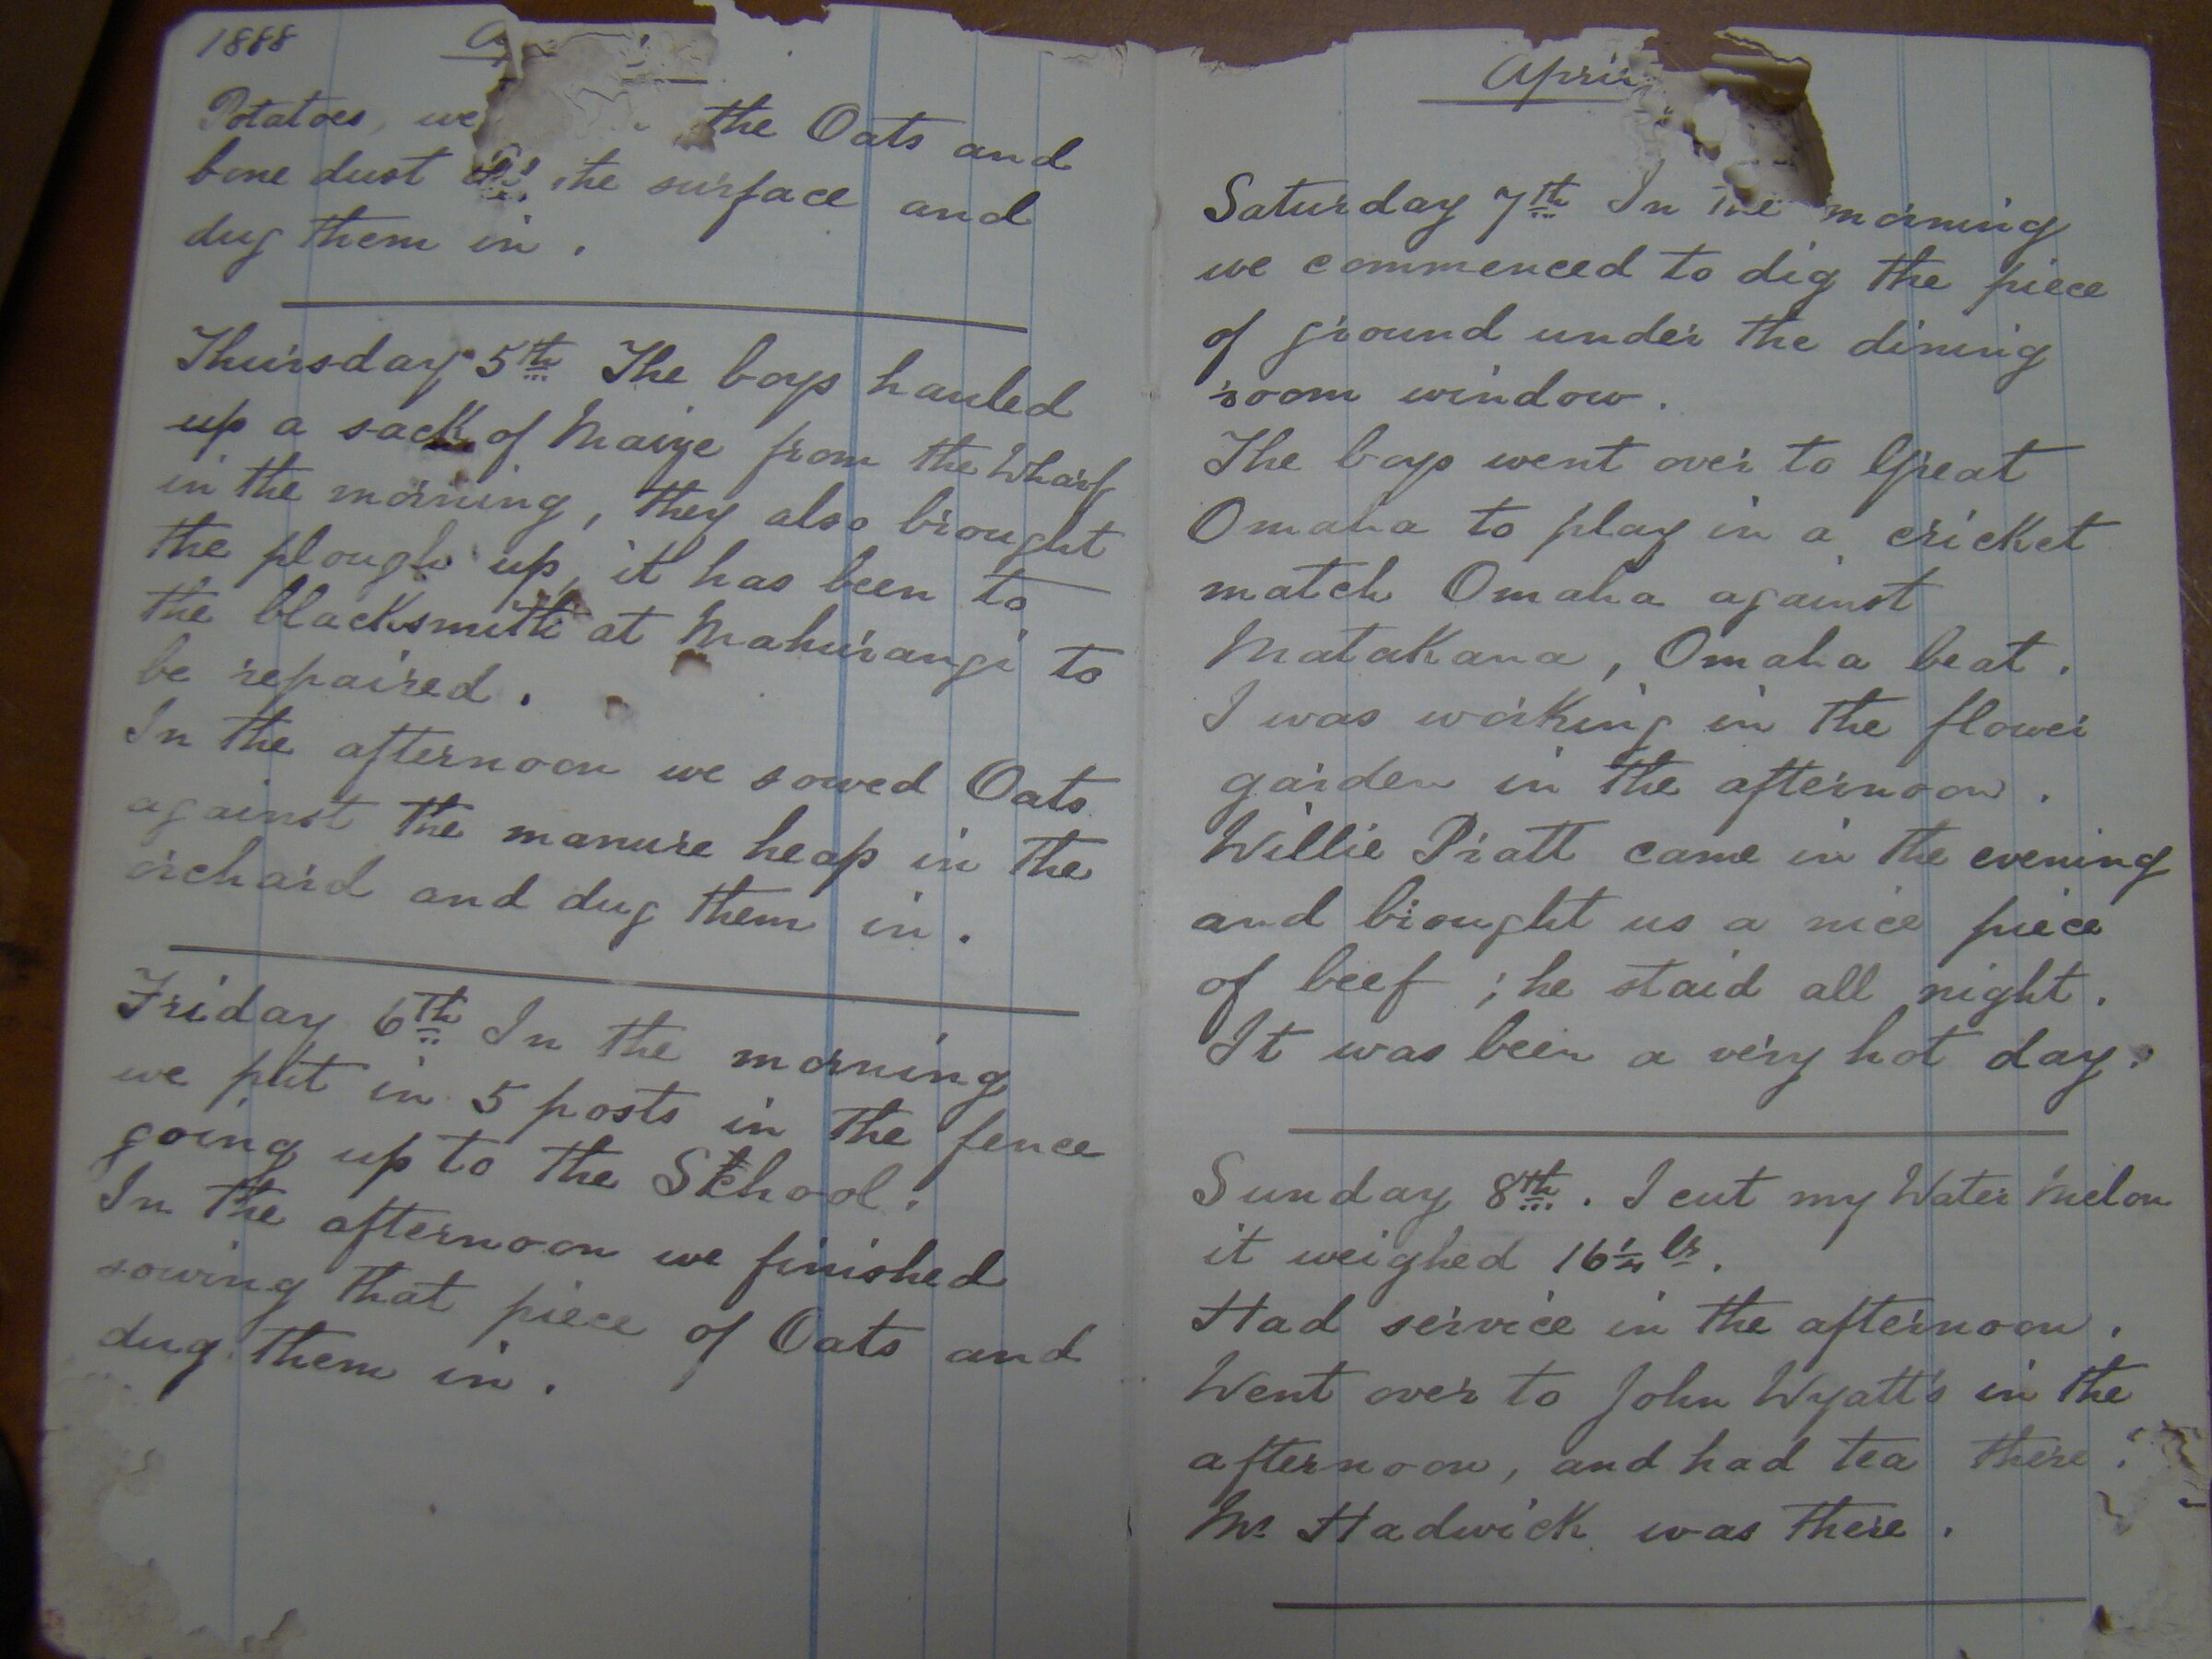 1888
Potatoes, we the Oats and
bone dust the surface and
dug them in.
Thursday 5th The boys hauled
up a sack of Maize from the Wharf
in the morning, they also brought
the plough up, it has been to
the blacksmith at Mahurangi to
be repaired.
In the afternoon we sowed Oats
against the manure heap in the
orchard and dug them in.
Friday 6th In the morning
we put in 5 posts in the fence
going up to the School.
In the afternoon we finished
sowing that piece of Oats and
dug them in.
April
Saturday 7th In the morning
we commenced to dig the piece
of ground under the dining
room window.
The boys went over to Great
Omaha to play in a cricket
match Omaha against
Matakana, Omaha beat.
I was working in the flower
garden in the afternoon.
Willie Pratt came in the evening
and brought us a nice piece
of beef; he staid all night.
It was been a very hot day.
Sunday 8th. I cut my Water Melon
it weighed 16½ lbs.
Had service in the afternoon.
Went over to John Wyatt's in the
afternoon, and had tea there.
Mr Hadwick was there.